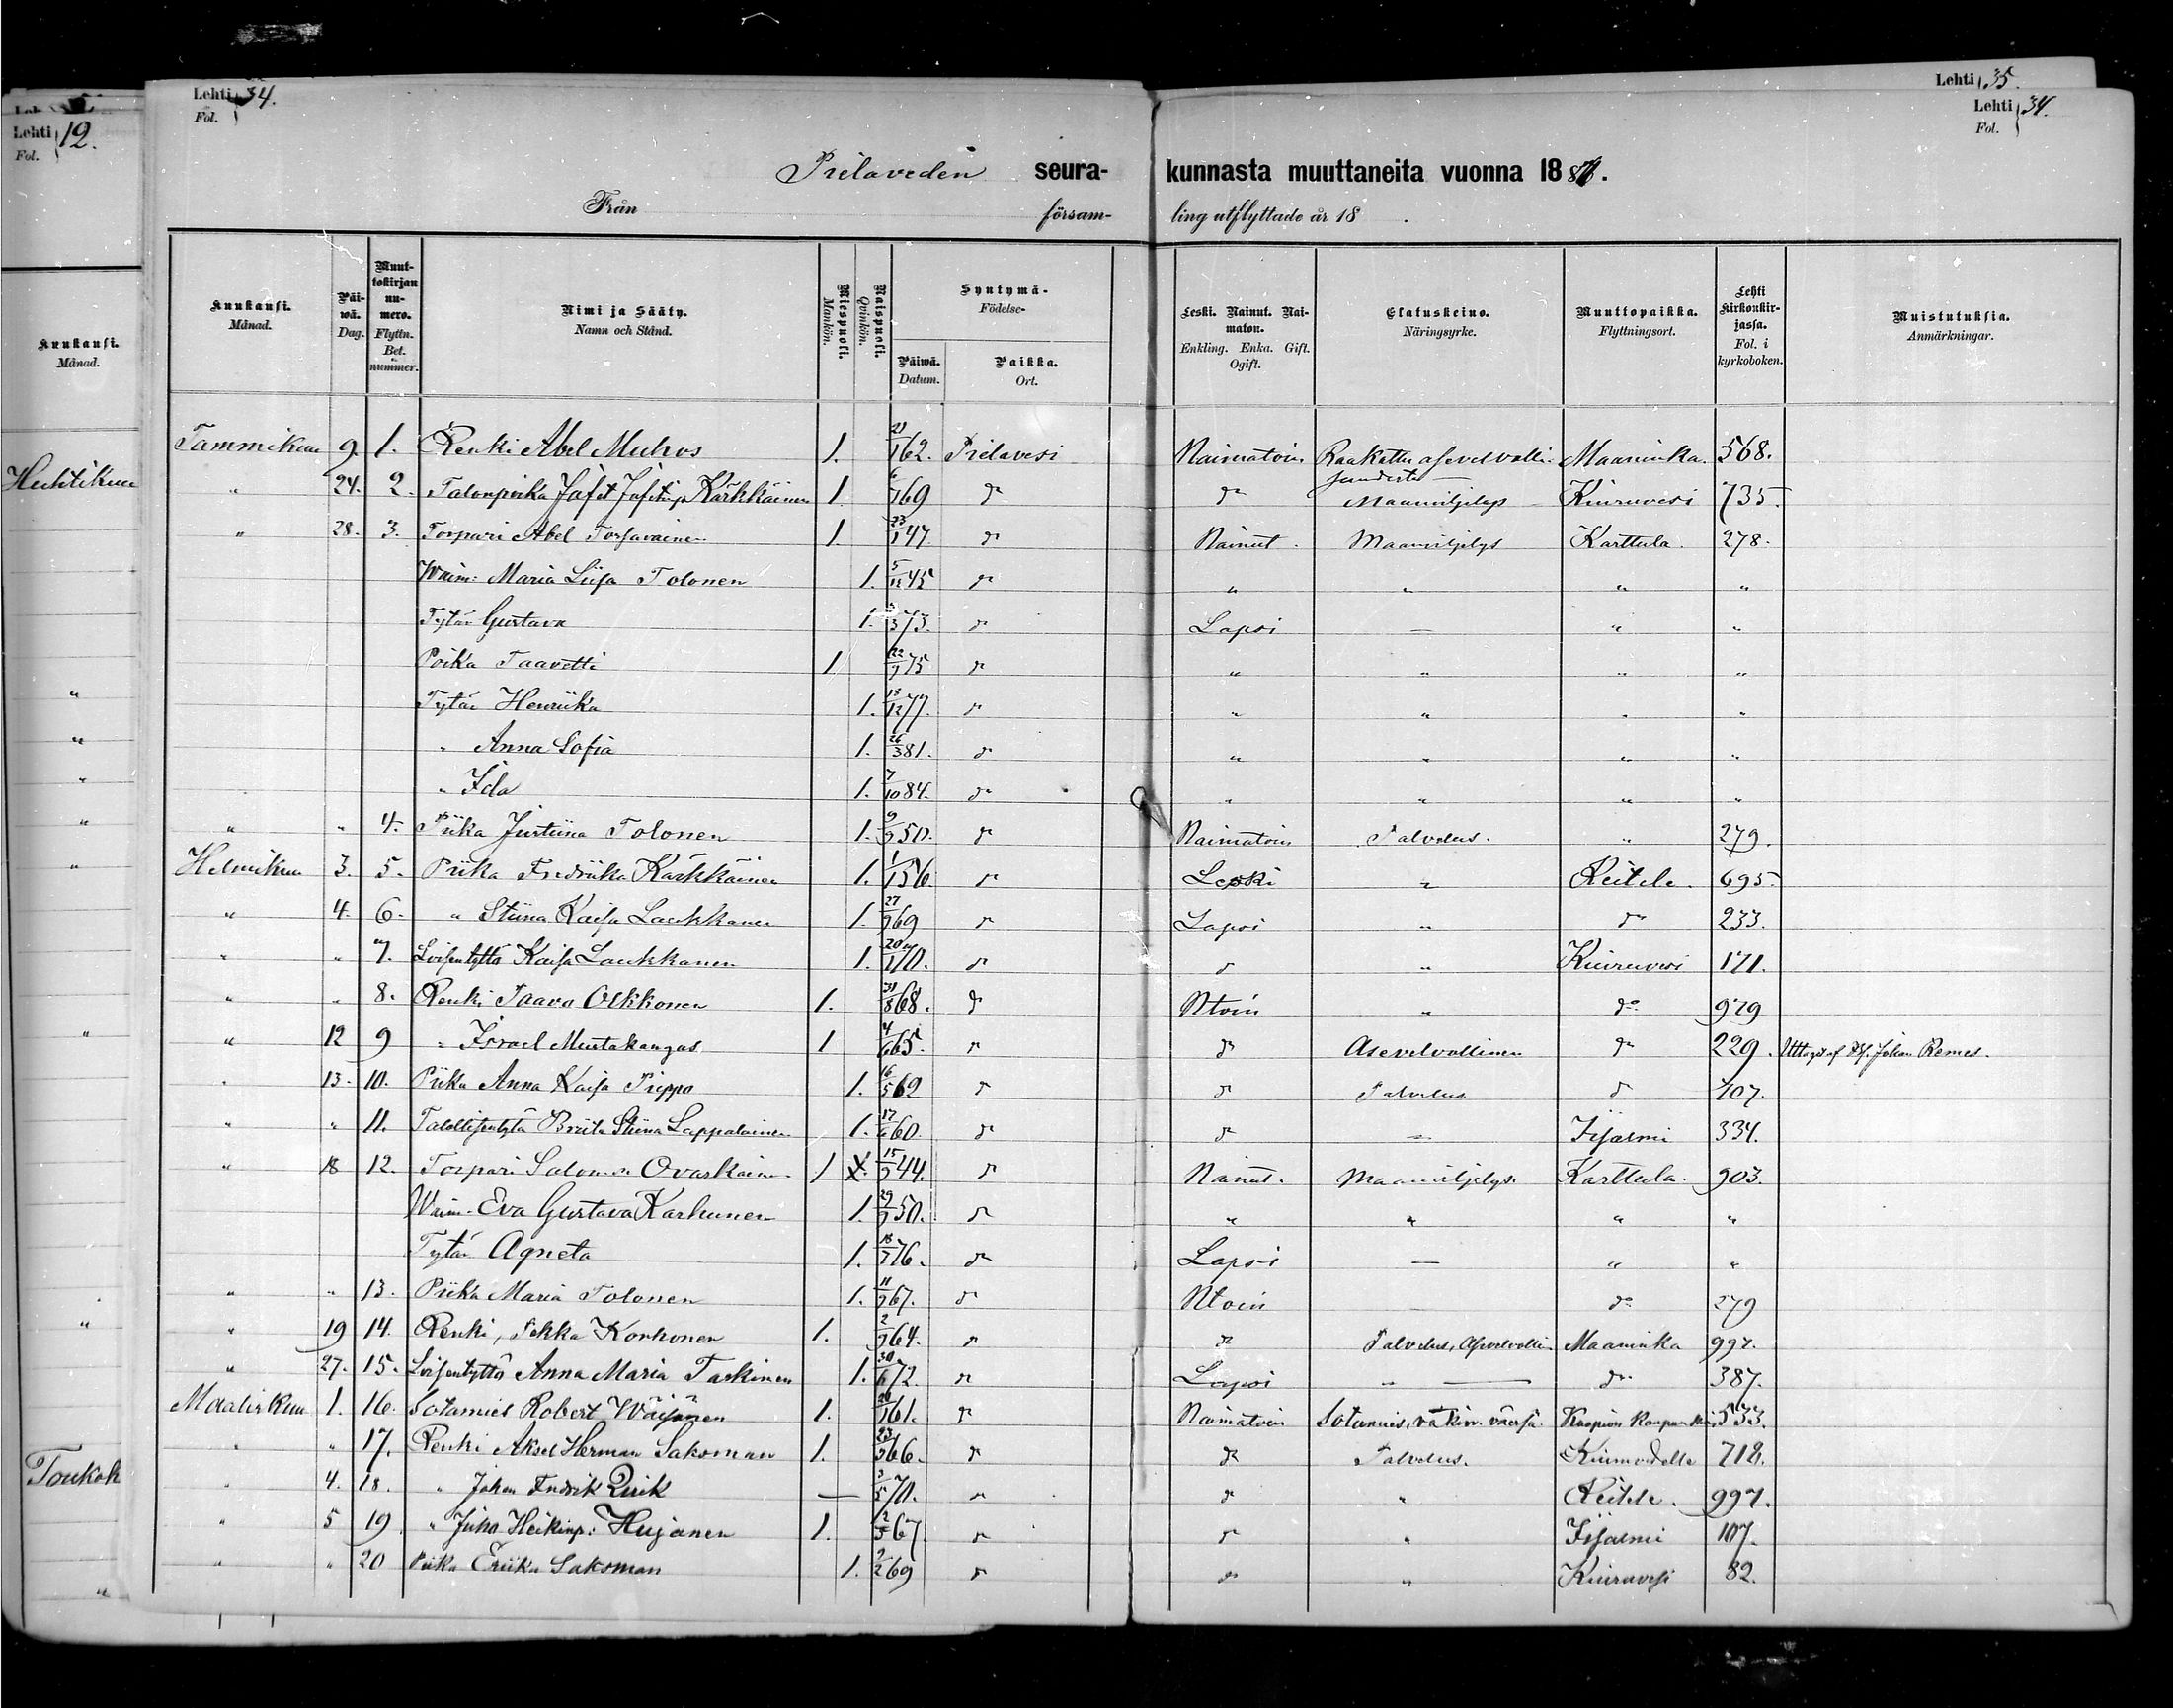 Lehti 34.
Fol.
Lehti 35.
Lehti 34.
Fol.
Lehti 12.
Fol.
Pielaveden seura- kunnasta muuttaneita vuonna 188
Från försam- ling utflyttade år 18 .
Kuukausi. Månad.
Kuukausi. Månad. Päiwä. Dag. Muuttokirjan numero. Flyttn. Bet. nummer. Nimi ja Sääty. Namn och Stånd. Miespuoli. Mankön. Naispuoli. Qvinkön. Syntymä- Födelse- Päiwä. Datum. Paikka. Ort. Leski. Nainut. Naimaton. Enkling. Enka. Gift. Ogift. Elatuskeino. Näringsyrke. Muuttopaikka. Flyttningsort. Lehti kirkonkirjassa. Fol. i kyrkoboken. Muistutuksia. Anmärkningar.
Tammikuu 9. 1. Renki Abel Muhos 1. 21/1 62. Pielavesi Naimatoin Maaninka. 568.
Huhtikuu
" 24. 2. Talonpoika Jafet Kärkkäinen 1. 69 do do Maanviljelys Kiuruvesi 735.
" 28. 3. Torpari Abel Torfvainen 1. 23/1 47. do Nainut. Maanviljelys Karttula. 278.
Waim: Maria Liisa Tolonen 1. 5/12 45 do " " " "
Tytär Gustava 1. 73. do Lapsi — " "
Poika Taavetti 1 22/9 75 do " " " "
Tytär Henriika 1. 18/12 77. do " " " "
" Anna Sofia 1. 26/3 81. do " " " "
" Ida 1. 7/10 84. do " " " "
" " 4. Piika Justiina Tolonen 1. 9/9 50. do Naimatoin Palvelus. " 279.
Helmikuu 3. 5. Piika Fredriika Kärkkäinen 1. 1/1 56. do Leski " Keitele. 695.
" 4. 6. " Stiina Kaisa Laukkanen 1. 27/9 69 do Lapsi " do 233.
" " 7. Loisentyttö Kaisa Laukkanen 1. 20/1 70. do do " Kiuruvesi 171.
" " 8. Renki Paavo Oikkonen 1. 31/8 68. do Ntoin " do 979
" 12 9 " Israel Mustakangas 1 4/6 65. do do Asevelvollinen do 229. Johan Remes.
" 13. 10. Piika Anna Kaisa Pieppo 1. 16/5 62 do do Palvelus do 107.
" " 11. Briita Stiina Lappalainen 1. 17/6 60. do do " Iisalmi 334.
" 18 12. Torpari Salomon Ovaskainen 1 15/9 44. do Nainut. Maanviljelys. Karttula. 903.
Waim. Eva Gustava Karhunen 1. 29/9 50. do " " " "
Tytär Agneta 1. 18/7 76. do Lapsi — " "
" " 13. Piika Maria Tolonen 1. 11/9 67. do Ntoin do 279
" 19 14. Renki, Pekka Korhonen 1. 2/9 64. do do Palvelus, Maaninka 997.
" 27. 15. Loisentyttö Anna Maria Tarkinen 1. 30/6 72. do Lapsi " — do 387.
Maaliskuu 1. 16. Sotamies Robert Wäisänen 1. 61. do Naimatoin Sotamies, Kuopion 533.
" " 17. Renki Aksel Herman Saksman 1. 23/9 66. do do Palvelus. 718.
Toukok
" 4. 18. " Johan Fredrik — 3/5 70. do do " Keitele. 997.
" 5 19. " Juho Heikinp: Hujanen 1. 67. do do " Iisalmi 107.
" " 20 Piika Eriika Saksman 1. 2/2 69 do do " Kiuruvesi 82.